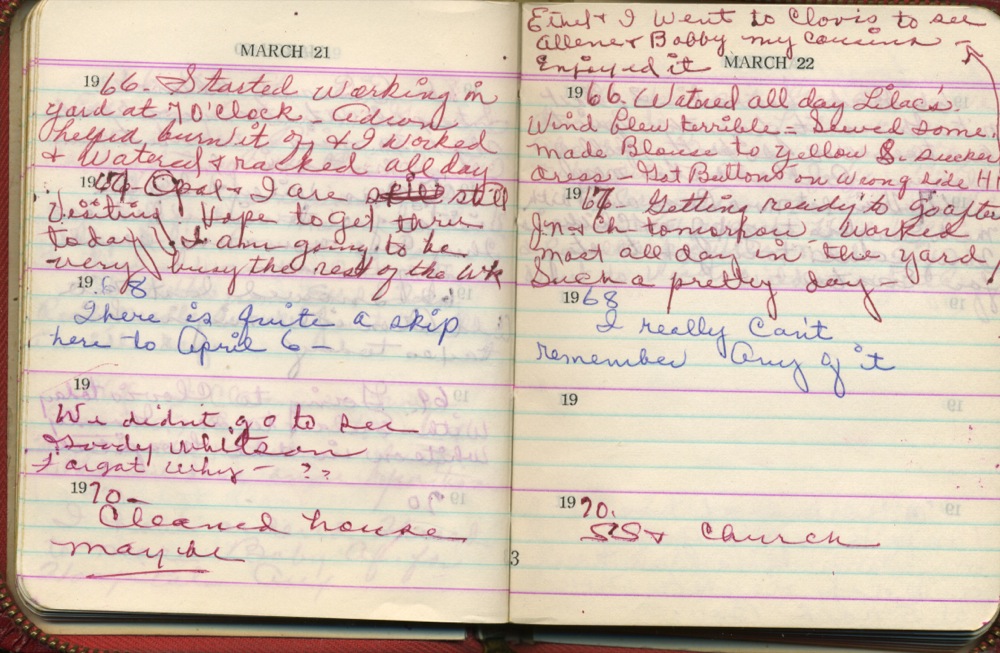 MARCH 21
1966. Started working in
yard at 7 O'clock -
helped burn it of & I worked
& watered & racked all day
1967- Opal & I are still still
Visiting Hope to get thru
today I am going to be
very busy the rest of the wk
1968
There is quite a skip
here to April 6 -
19
We didnt go to see
Whitson
Forgot why - ??
1970-
Cleaned house
maybe
Ethel & I Went to Clovis to see
Allene & Bobby my cousins -
Enjoyed it
MARCH 22
1966. Watered all day Lilacs
Wind blew terrible = Sewed some.
Made Blouse to yellow S. sucker
dress - Got Buttons on wrong side
1967 Getting ready to go after
Jn & Ch tomorrow Worked
most all day in the yard
Such a pretty day -
1968
I really Can't
remember Any of it
19
1970.
SS & Church
3